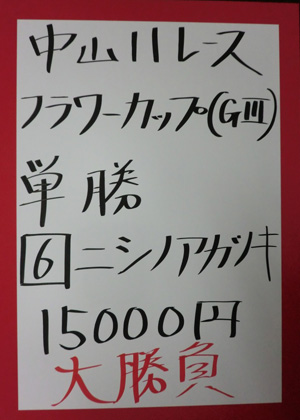 中山11レース
フラワーカップ(GIII)
単勝
6 ニシノアカツキ
15000円
大勝負